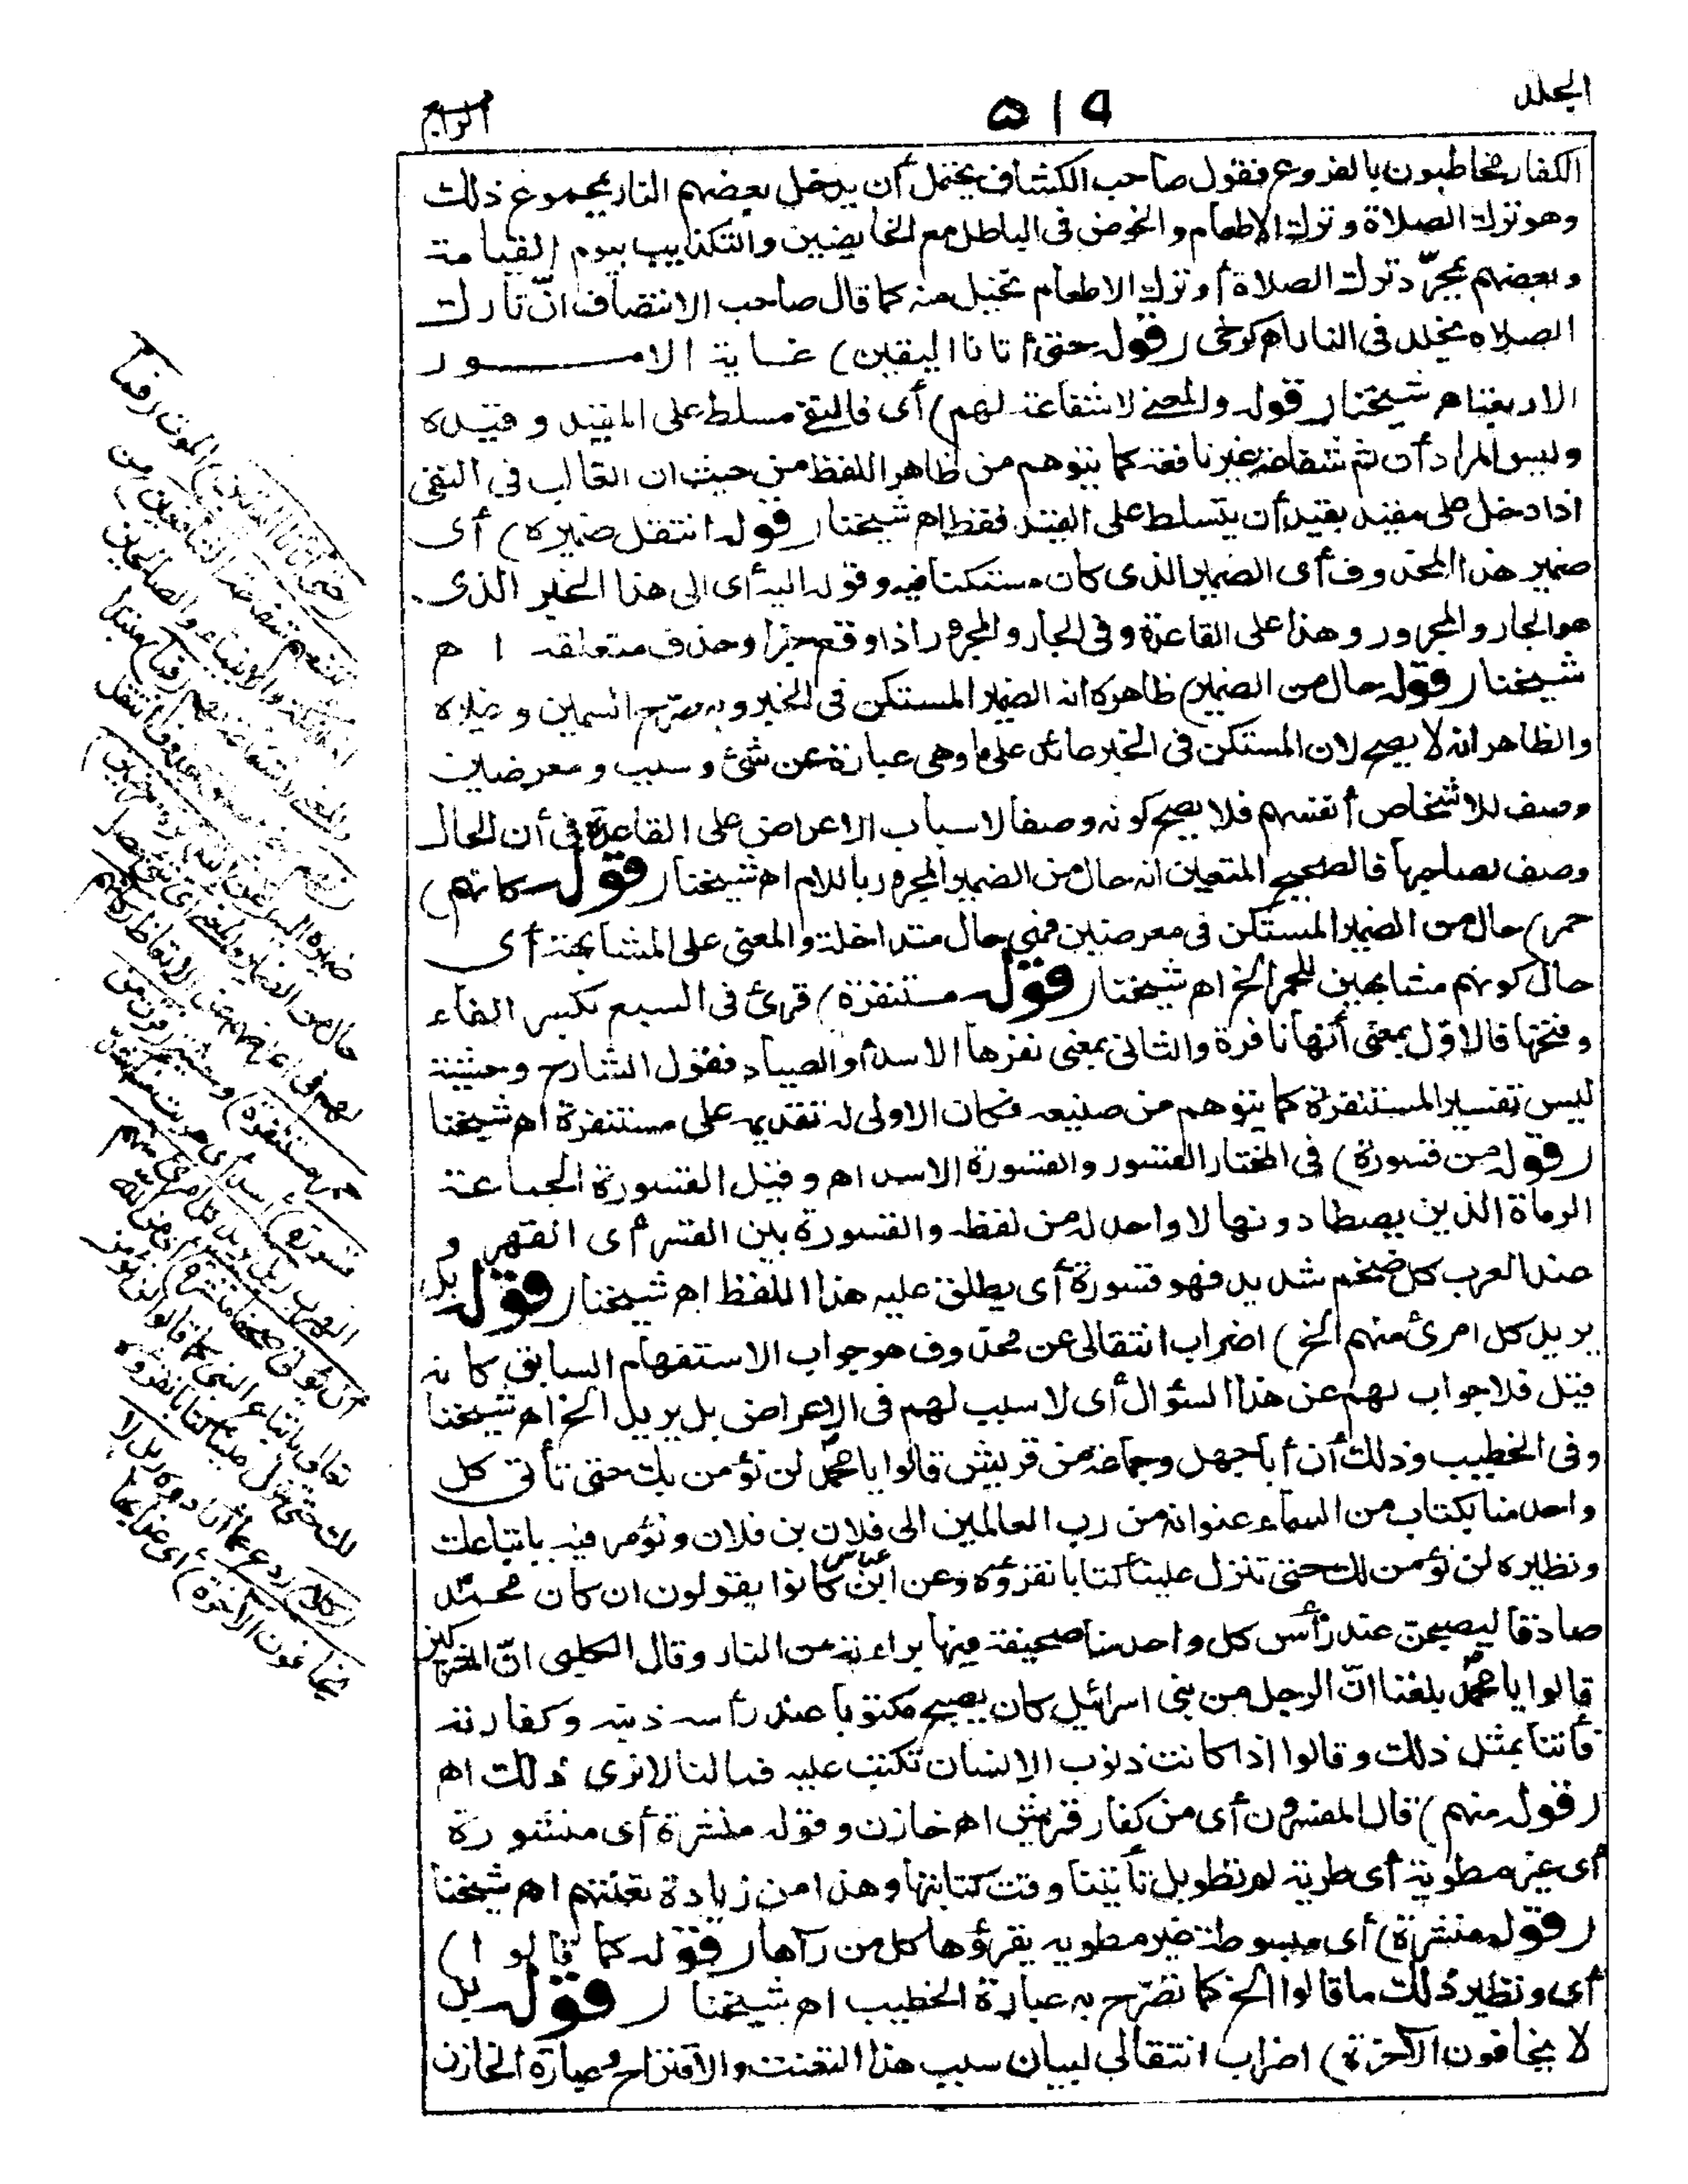 الجلد
٥١٩
الرابع
الكفار مخاطبون بالفروع فقول صاحب الكشاف يحتمل أن يدخل بعضهم النار بمجموع ذلك
وهو ترك الصلاة وترك الإطعام والخوض فى الباطل مع الخائضين والتكذيب بيوم القيامة
وبعضهم بمجرّد ترك الصلاة أو ترك الاطعام تخيل منه كما قال صاحب الانتصاف انّ تارك
الصلاه يخلد فى النار اه كرخى (قوله حتى أتانا اليقين) غاية الامور
الاربعة اه شيخنا (قوله والمعنى لا شفاعة لهم) أى فالنفى مسلط على المقيد وقيده
وليس المراد أن ثم شفاعة غير نافعة كما يتوهم من ظاهر اللفظ من حيث ان الغالب فى النفى
اذا دخل على مقيد بقيد أن يتسلط على القيد فقط اه شيخنا (قوله انتقل ضميره) أى
ضمير هذا المحذوف أى الضمير الذى كان مستكنا فيه وقوله اليه أى الى هذا الخبر الذى
هو الجار والمجرور وهذا على القاعدة فى الجار والمجرور اذا وقع خبرا وحذف متعلقه ا ه
شيخنا (قوله حال من الضمير) ظاهره انه الضمير المستكن فى الخبر وبه صرّح السمين وغيره
والظاهر انه لا يصح لان المستكن فى الخبر عائد على ما وهى عبارة عن شئ وسبب ومعرضين
وصف للاشخاص أنفسهم فلا يصح كونه وصفا لاسباب الاعراض على القاعدة فى أن الحال
وصف لصاحبها فالصحيح المتعين انه حال من الضمير المجرور باللام اه شيخنا (قوله كانهم
حمر) حال من الضمير المستكن فى معرضين فهى حال متداخلة والمعنى على المشابهة أى
حال كونهم مشابهين للحمر الخ اه شيخنا (قوله مستنفرة) قرئ فى السبع بكسر الفاء
وفتحها فالاوّل بمعنى أنها نافرة والثانى بمعنى نفرها الاسد أو الصياد فقول الشارح وحشية
ليس تفسيرا لمستنفرة كما يتوهم من صنيعه فكان الاولى له تقديمه على مستنفرة اه شيخنا
(قوله من قسورة) فى المختار القسور والقسورة الاسد اه وقيل القسورة الجماعة
الرماة الذين يصطادونها لا واحد له من لفظه والقسورة من القسر أى القهر و
عند العرب كل ضخم شديد فهو قسورة أى يطلق عليه هذا اللفظ اه شيخنا (قوله بل
يريد كل امرئ منهم الخ) اضراب انتقالى عن محذوف هو جواب الاستفهام السابق كانه
قيل فلا جواب لهم عن هذا السؤال أى لا سبب لهم فى الاعراض بل يريد الخ اه شيخنا
وفى الخطيب وذلك أن أبا جهل وجماعة من قريش قالوا يا محمد لن نؤمن بك حتى تأتى كل
واحد منا بكتاب من السماء عنوانه من رب العالمين الى فلان بن فلان ونؤمر فيه باتباعك
ونظيره لن نؤمن لك حتى تنزل علينا كتابا نقرؤه وعن ابن عباس كانوا يقولون ان كان محمد
صادقا ليصبحن عند رأس كل واحد منا صحيفة فيها براءته من النار وقال الكلبى انّ المشركين
قالوا يا محمد بلغنا انّ الرجل من بنى اسرائيل كان يصبح مكتوبا عند رأسه ذنبه وكفارته
فأتنا بمثل ذلك وقالوا اذا كانت ذنوب الانسان تكتب عليه فما لنا لا نرى ذلك اه
(قوله منهم) قال المفسرون أى من كفار قريش اه خازن وقوله منشرة أى منشورة
أى غير مطوية أى طرية لم تطو بل تأتينا وقت كتابتها وهذا من زيادة تعنتهم اه شيخنا
(قوله منشرة) أى مبسوطة غير مطويه يقرؤها كل من رآها (قوله كما قالوا)
أى ونظير ذلك ما قالوا الخ كما تصرّح به عبارة الخطيب اه شيخنا (قوله بل
لا يخافون الآخرة) اضراب انتقالى لبيان سبب هذا التعنت والاقتراح وعبارة الخازن
(حتى أتانا اليقين) الموت (فما
تنفعهم شفاعة الشافعين) من
الملائكة والانبياء والصالحين
والمعنى لا شفاعة لهم (فما) مبتدا
ضميره اليه (عن التذكرة معرضين)
حال من الضمير والمعنى أى شئ حصل
لهم فى اعراضهم عن الاتعاظ (كأنهم
حمر مستنفرة) وحشية (فرت من
قسورة) أسد أى هربت منه أشد
الهرب (بل يريد كل امرئ منهم
أن يؤتى صحفا منشرة) أى من الله
تعالى باتباع النبى كما قالوا لن نؤمن
لك حتى تنزل علينا كتابا نقرؤه
(كلا) ردع عما أرادوه (بل لا
يخافون الآخرة) أى عذابها